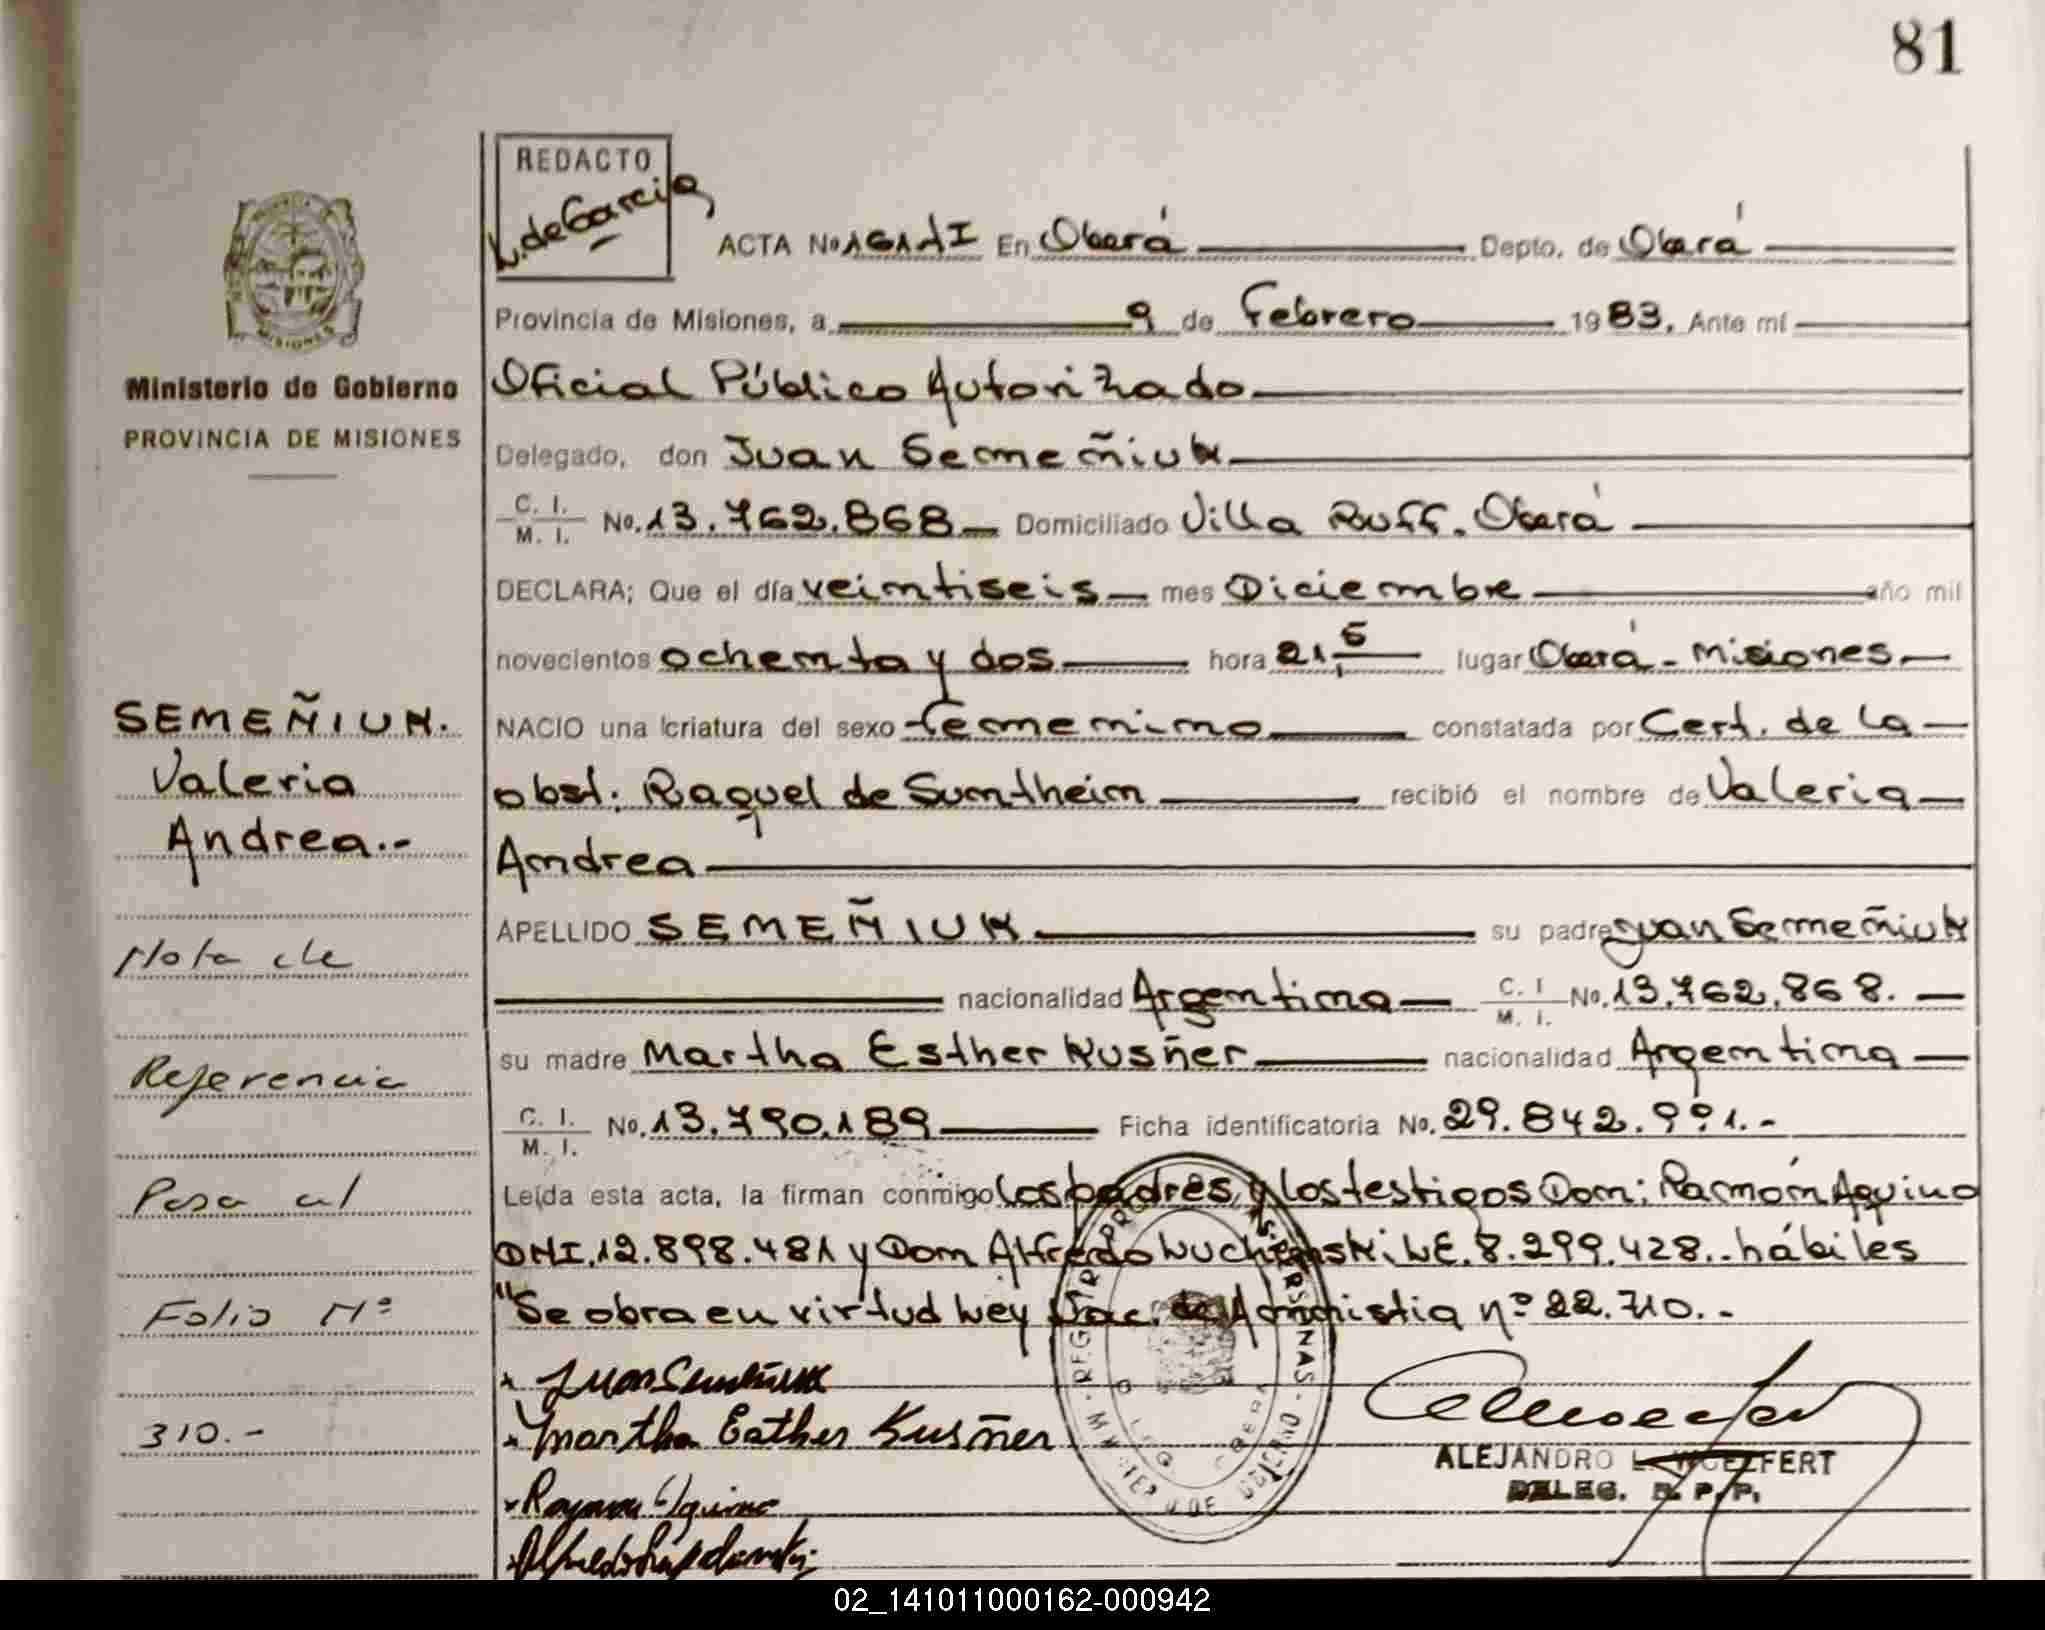 81
REDACTO
L. de Garcia
ACTA No 161 dI En Oberá Depto. de Oberá
Provincia de Misiones, a 9 de Febrero 1983. Ante mí
Ministerio de Gobierno
PROVINCIA DE MISIONES
Oficial Público Autorizado
Delegado, don Juan Semeñiuk
C. I.
M. I. No. 13.762.868 Domiciliado Villa Ruff. Oberá
DECLARA; Que el día veintiseis mes Diciembre año mil
novecientos ochenta y dos hora 21,5 lugar Oberá - Misiones
NACIO una criatura del sexo femenino constatada por Cert. de la
obst. Raquel de Sumtheim recibió el nombre de Valeria
Andrea
APELLIDO SEMEÑIUK su padre Juan Semeñiuk
nacionalidad Argentina C. I
M. I. No. 13.762.868.
su madre Martha Esther Kusñer nacionalidad Argentina
C. I.
M. I. No. 13.790.189 Ficha identificatoria No. 29.842.991.-
Leída esta acta, la firman conmigo los padres, y los testigos Don: Ramón Aquino
DNI. 12.898.481 y Don Alfredo LE. 8.299.428.. hábiles
"Se obra en virtud Ley Nac. de Amnistia nº 22.710.-
SEMEÑIUK.
Valeria
Andrea.-
Nota de
Referencia
Pasa al
Folio Nº
310.-
Juan Semeñiuk
Martha Esther Kusñer
Ramon Aquino
ALEJANDRO L. WOELFERT
DELEG. R. P. P.
02_141011000162-000942